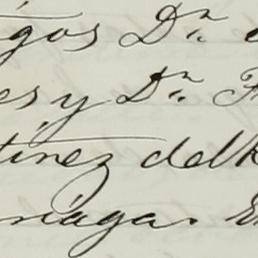 igos Dn.
es y Dn. F
tinez del
niagas